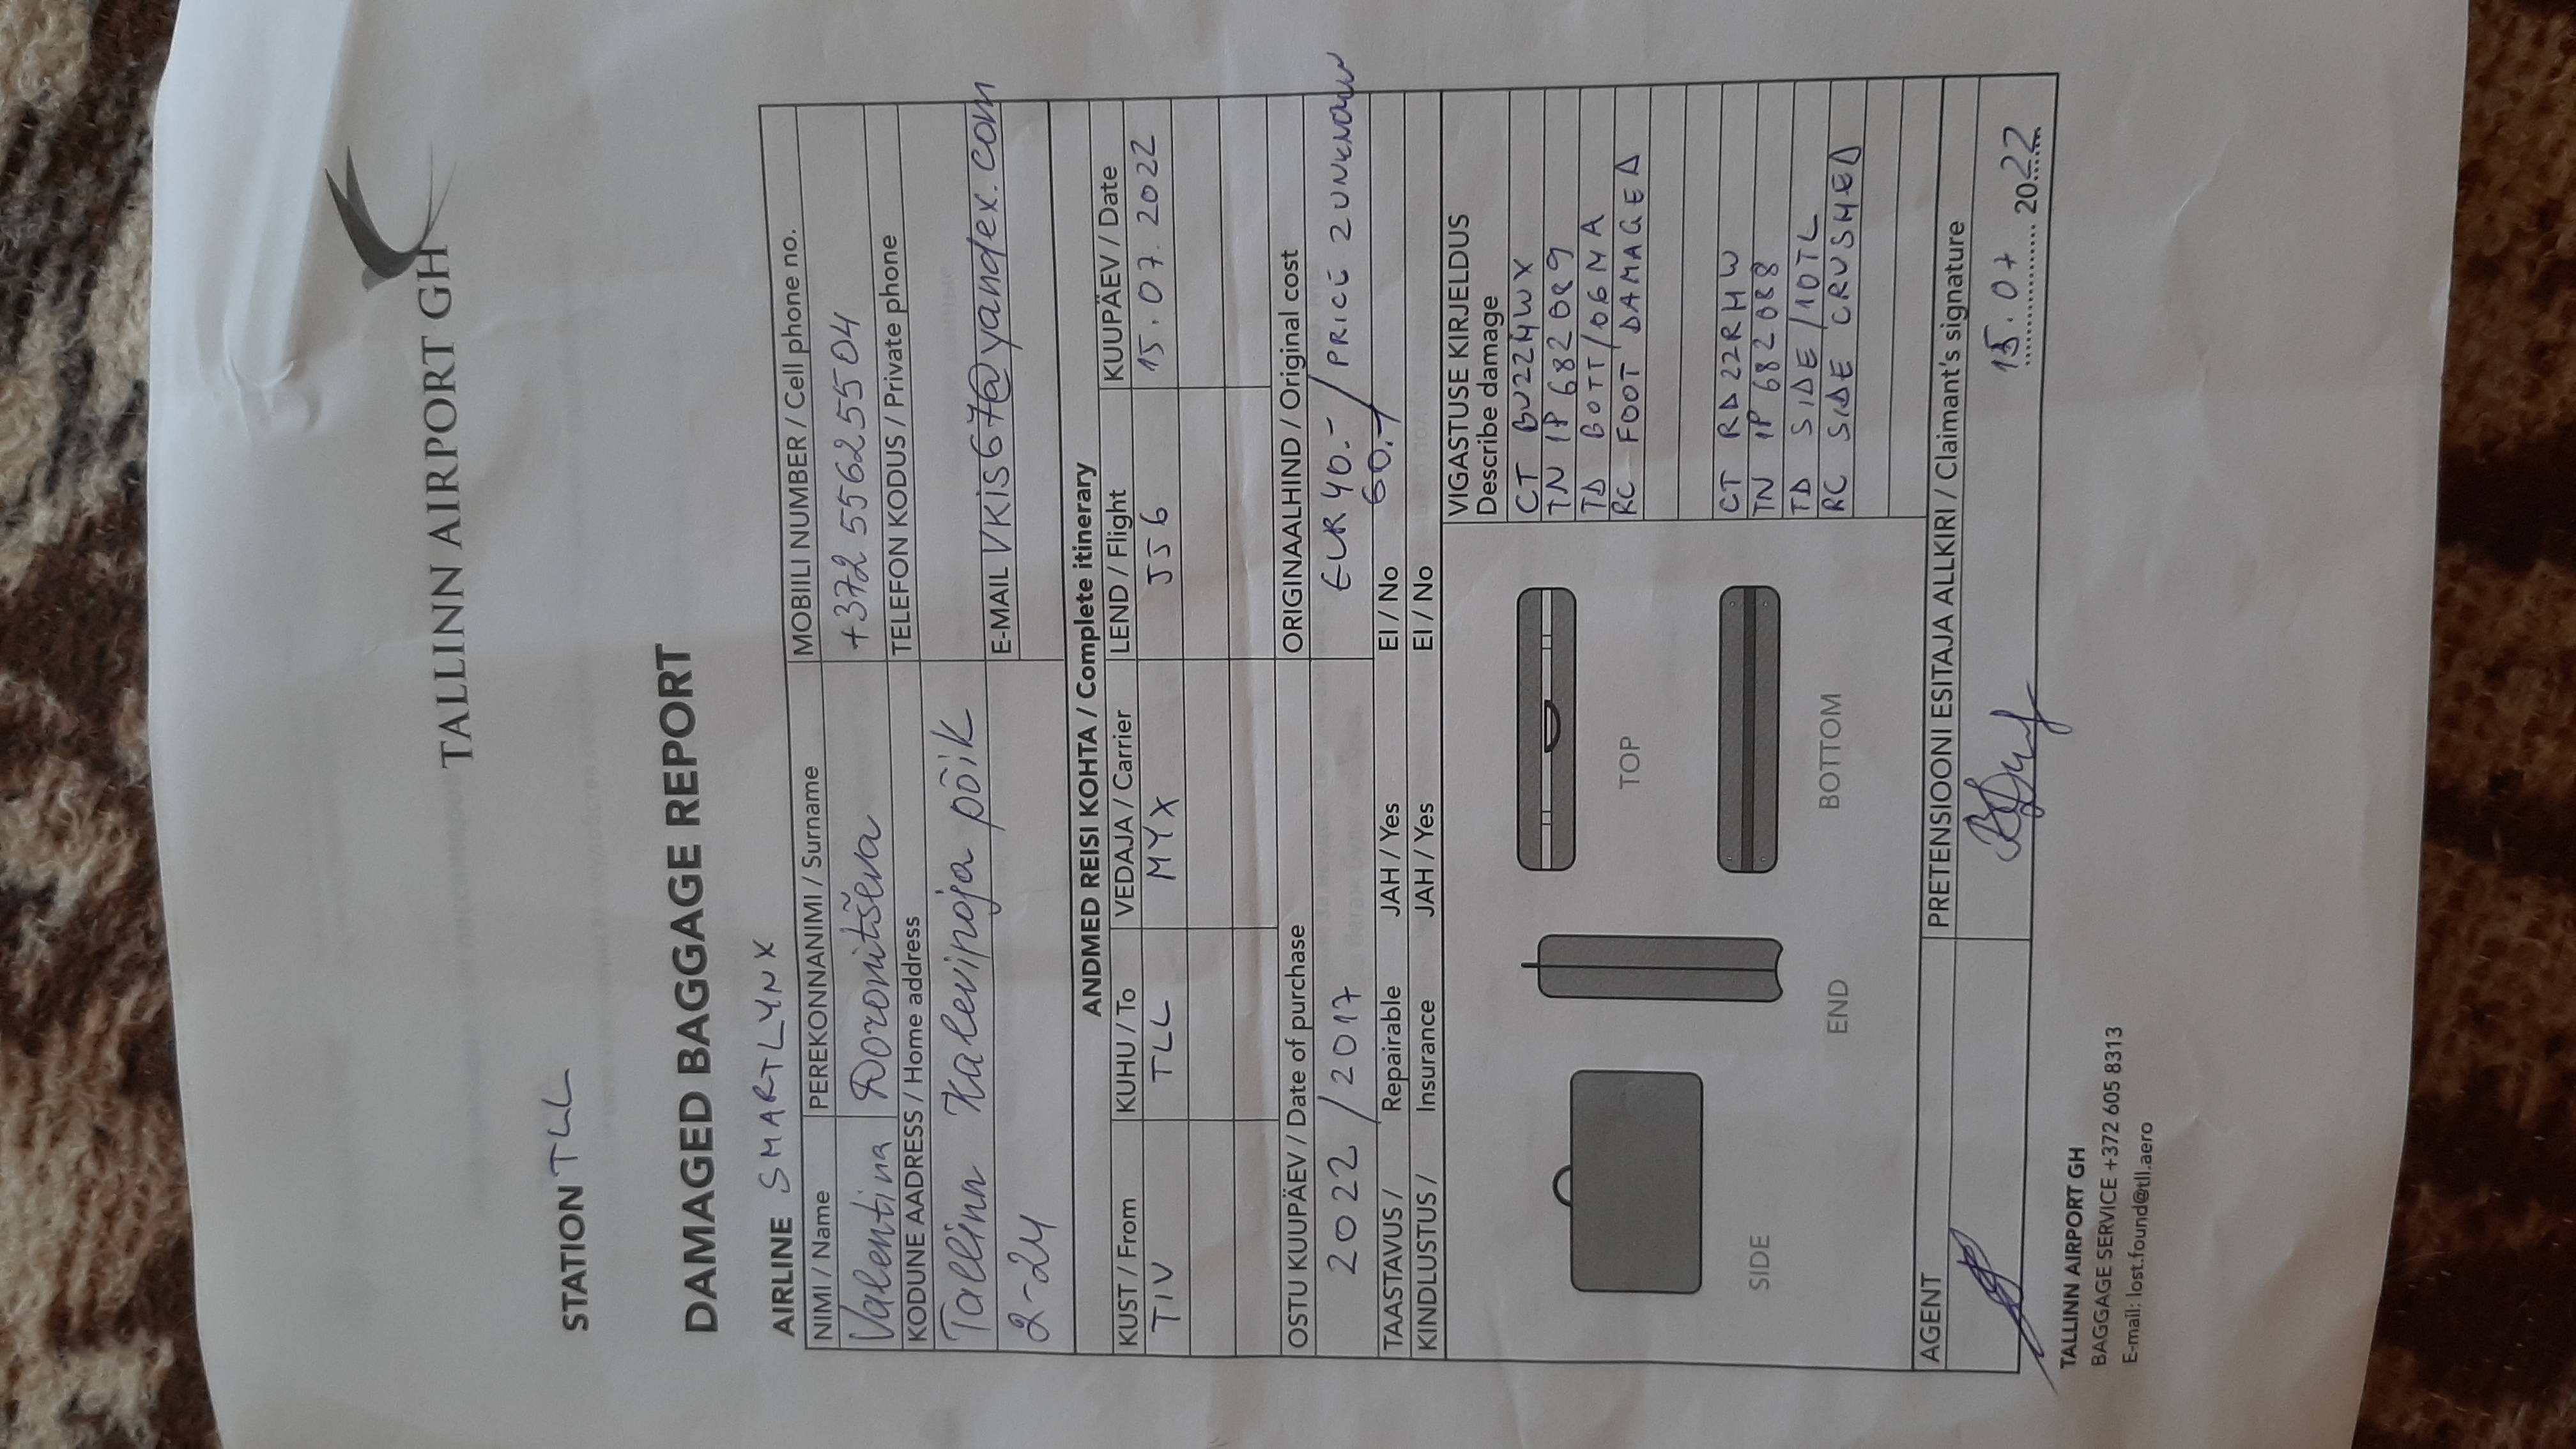 TALLINN AIRPORT GH
STATION TLL
DAMAGED BAGGAGE REPORT
AIRLINE SMARTLYNX
NIMI / Name PEREKONNANIMI / Surname MOBIILI NUMBER / Cell phone no.
Valentina Doronitševa +372 55625504
KODUNE AADRESS / Home address TELEFON KODUS / Private phone
Tallinn Kalevipoja põik
2-24
E-MAIL VKis67@yandex.com
ANDMED REISI KOHTA / Complete itinerary
KUST / From KUHU / To VEDAJA / Carrier LEND / Flight KUUPÄEV / Date
TIV TLL MYX 15.07.2022
OSTU KUUPÄEV / Date of purchase ORIGINAALHIND / Original cost
2022 / 2017 EUR 40.- / PRICE 2 UNKNOWN
60.-
TAASTAVUS / Repairable JAH / Yes EI / No
KINDLUSTUS / Insurance JAH / Yes EI / No
VIGASTUSE KIRJELDUS
Describe damage
CT BU22HWX
TN IP 682089
TD BOTT/06MA
RC FOOT DAMAGED
CT RD22RHW
TN IP 682088
TD SIDE/10TL
RC SIDE CRUSHED
SIDE END TOP BOTTOM
AGENT PRETENSIOONI ESITAJA ALLKIRI / Claimant's signature
15.07 2022
TALLINN AIRPORT GH
BAGGAGE SERVICE +372 605 8313
E-mail: lost.found@tll.aero